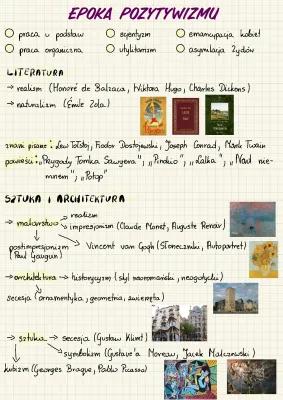 EPOKA POZYTYWIZMU
praca u podstaw
scjentyzm
emancypacja kobiet
praca organiczna
utylitaryzm
asymilacja Żydów
LITERATURA
→ realizm (Honoré de Balzaca, Wiktora Hugo, Charles Dickens)
→ naturalizm (Émile Zola)
znani pisarze: Lew Tołstoj, Fiodor Dostojewski, Joseph Conrad, Mark Twain
powieści: "Przygody Tomka Sawyera", "Pinokio", "Lalka", "Nad nie-
mnem", "Potop"
SZTUKA I ARCHITEKTURA
→ malarstwo → realizm
impresjonizm (Claude Monet, Auguste Renoir)
postimpresjonizm → Vincent van Gogh (Słoneczniki, Autoportret)
(Paul Gauguin)
→ architektura → historyzm (styl neoromański, neogotycki)
secesja (ornamentyka, geometria, zwierzęta)
→ sztuka → secesja (Gustaw Klimt)
symbolizm (Gustave'a Moreau, Jacek Malczewski)
kubizm (Georges Braque, Pablo Picasso)